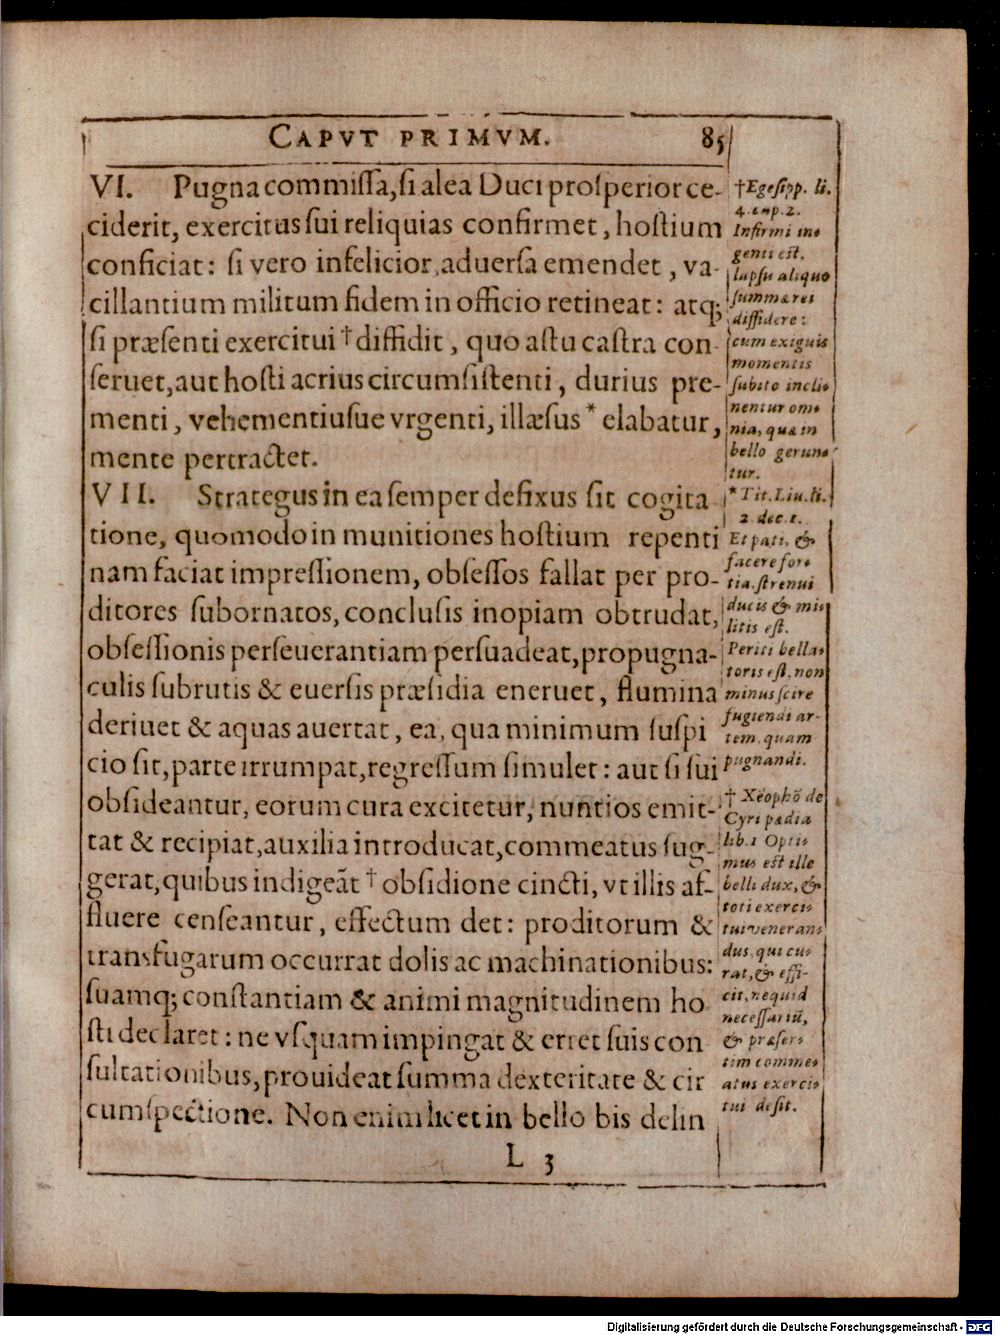 CAPVT PRIMVM. 85
VI. Pugna commiſſa, ſi alea Duci proſperior ce-
ciderit, exercitus ſui reliquias confirmet, hoſtium
conficiat: ſi vero infelicior, aduerſa emendet, va-
cillantium militum fidem in officio retineat: atq;
ſi præſenti exercitui † diffidit, quo aſtu caſtra con-
ſeruet, aut hoſti acrius circumſiſtenti, durius pre-
menti, vehementiuſue vrgenti, illæſus * elabatur,
mente pertractet.
VII. Strategus in ea ſemper defixus ſit cogita
tione, quomodo in munitiones hoſtium repenti
nam faciat impreſſionem, obſeſſos fallat per pro-
ditores ſubornatos, concluſis inopiam obtrudat,
obſeſſionis perſeuerantiam perſuadeat, propugna-
culis ſubrutis & euerſis præſidia eneruet, flumina
deriuet & aquas auertat, ea, qua minimum ſuſpi
cio ſit, parte irrumpat, regreſſum ſimulet: aut ſi ſui
obſideantur, eorum cura excitetur, nuntios emit-
tat & recipiat, auxilia introducat, commeatus ſug-
gerat, quibus indigeãt † obſidione cincti, vt illis af-
fluere cenſeantur, effectum det: proditorum &
transfugarum occurrat dolis ac machinationibus:
ſuamq; conſtantiam & animi magnitudinem ho
ſti declaret: ne vſquam impingat & erret ſuis con
ſultationibus, prouideat ſumma dexteritate & cir
cumſpectione. Non enim licet in bello bis delin
L 3
†Egeſipp. li.
4. cap. 2.
Infirmi in-
genii eſt,
lapſu aliquo
ſummæ rei
diffidere:
cum exiguis
momentis
ſubito incli-
nentur om-
nia, quæ in
bello gerun-
tur.
* Tit. Liu. li.
2. dec. 1.
Et pati, &
facere for-
tia, ſtrenui
ducis & mi-
litis eſt.
Periti bella-
toris eſt, non
minus ſcire
fugiendi ar-
tem, quam
pugnandi.
† Xẽophõ de
Cyri pædia
lib. 1 Opti-
mus eſt ille
belli dux, &
toti exerci-
tui veneran-
dus, qui cu-
rat, & effi-
cit, nequid
neceſſariũ,
& præſer-
tim comme-
atus exerci-
tui deſit.
Digitalisierung gefördert durch die Deutsche Forschungsgemeinschaft - DFG